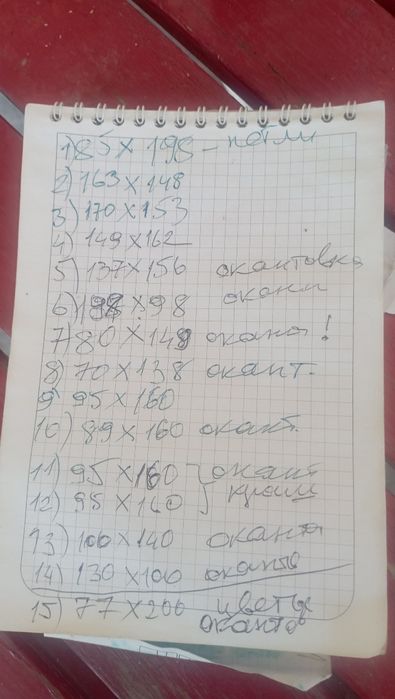 1) 85 X 198 - петли
2) 163 X 148
3) 170 X 153
4) 149 X 162
5) 137 X 156 окантовка
6) 198 X 98 окант
7) 80 X 148 окант !
8) 70 X 138 окант.
9 95 X 160
10) 89 X 160 окант.
11) 95 X 160 окант
12) 95 X 160 краш
13) 100 X 140 оканто
14) 130 X 100 оканто
15) 77 X 200 цветы
оканто